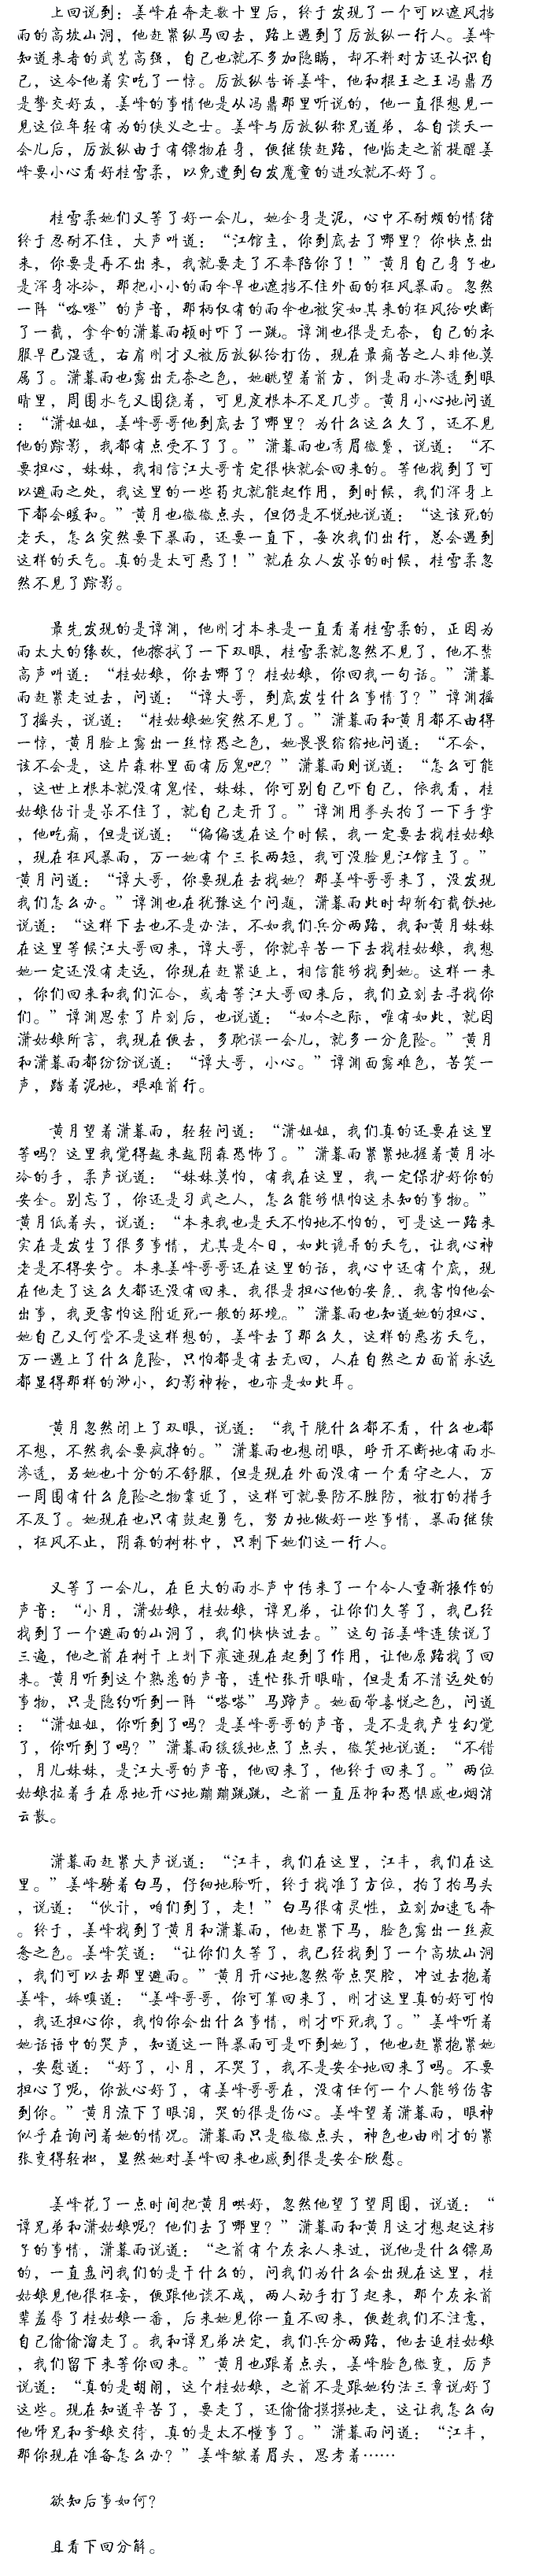 上回说到：姜峰在奔走数十里后，终于发现了一个可以遮风挡
雨的高坎山洞，他赶紧纵马回去，路上遇到了厉放纵一行人。姜峰
知道来者的武艺高强，自己也就不多加隐瞒，却不料对方还认识自
己，这令他着实吃了一惊。厉放纵告诉姜峰，他和棍王之王冯鼎乃
是挚交好友，姜峰的事情他是从冯鼎那里听说的，他一直很想见一
见这位年轻有为的侠义之士。姜峰与厉放纵称兄道弟，各自谈天一
会儿后，厉放纵由于有镖物在身，便继续赶路，他临走之前提醒姜
峰要小心看好桂雪柔，以免遭到白发魔童的进攻就不好了。
桂雪柔她们又等了好一会儿，她全身是泥，心中不耐烦的情绪
终于忍耐不住，大声叫道：“江馆主，你到底去了哪里？你快点出
来，你要是再不出来，我就要走了不奉陪你了！”黄月自己身子也
是浑身冰冷，那把小小的雨伞早也遮挡不住外面的狂风暴雨。忽然
一阵“咯噔”的声音，那柄仅有的雨伞也被突如其来的狂风给吹断
了一截，拿伞的潇暮雨顿时吓了一跳。谭渊也很是无奈，自己的衣
服早已湿透，右肩刚才又被厉放纵给打伤，现在最痛苦之人非他莫
属了。潇暮雨也露出无奈之色，她眺望着前方，倒是雨水渗透到眼
睛里，周围水气又围绕着，可见度根本不足几步。黄月小心地问道
：“潇姐姐，姜峰哥哥他到底去了哪里？为什么这么久了，还不见
他的踪影，我都有点受不了了。”潇暮雨也秀眉微蹙，说道：“不
要担心，妹妹，我相信江大哥肯定很快就会回来的。等他找到了可
以避雨之处，我这里的一些药丸就能起作用，到时候，我们浑身上
下都会暖和。”黄月也微微点头，但仍是不悦地说道：“这该死的
老天，怎么突然要下暴雨，还要一直下，每次我们出行，总会遇到
这样的天气。真的是太可恶了！”就在众人发呆的时候，桂雪柔忽
然不见了踪影。
最先发现的是谭渊，他刚才本来是一直看着桂雪柔的，正因为
雨太大的缘故，他擦拭了一下双眼，桂雪柔就忽然不见了，他不禁
高声叫道：“桂姑娘，你去哪了？桂姑娘，你回我一句话。”潇暮
雨赶紧走过去，问道：“谭大哥，到底发生什么事情了？”谭渊摇
了摇头，说道：“桂姑娘她突然不见了。”潇暮雨和黄月都不由得
一惊，黄月脸上露出一丝惊恐之色，她畏畏缩缩地问道：“不会，
该不会是，这片森林里面有厉鬼吧？”潇暮雨则说道：“怎么可能
，这世上根本就没有鬼怪，妹妹，你可别自己吓自己，依我看，桂
姑娘估计是呆不住了，就自己走开了。”谭渊用拳头拍了一下手掌
，他吃痛，但是说道：“偏偏选在这个时候，我一定要去找桂姑娘
，现在狂风暴雨，万一她有个三长两短，我可没脸见江馆主了。”
黄月问道：“谭大哥，你要现在去找她？那姜峰哥哥来了，没发现
我们怎么办。”谭渊也在犹豫这个问题，潇暮雨此时却斩钉截铁地
说道：“这样下去也不是办法，不如我们兵分两路，我和黄月妹妹
在这里等候江大哥回来，谭大哥，你就辛苦一下去找桂姑娘，我想
她一定还没有走远，你现在赶紧追上，相信能够找到她。这样一来
，你们回来和我们汇合，或者等江大哥回来后，我们立刻去寻找你
们。”谭渊思索了片刻后，也说道：“如今之际，唯有如此，就因
潇姑娘所言，我现在便去，多耽误一会儿，就多一分危险。”黄月
和潇暮雨都纷纷说道：“谭大哥，小心。”谭渊面露难色，苦笑一
声，踏着泥地，艰难前行。
黄月望着潇暮雨，轻轻问道：“潇姐姐，我们真的还要在这里
等吗？这里我觉得越来越阴森恐怖了。”潇暮雨紧紧地握着黄月冰
冷的手，柔声说道：“妹妹莫怕，有我在这里，我一定保护好你的
安全。别忘了，你还是习武之人，怎么能够惧怕这未知的事物。”
黄月低着头，说道：“本来我也是天不怕地不怕的，可是这一路来
实在是发生了很多事情，尤其是今日，如此诡异的天气，让我心神
老是不得安宁。本来姜峰哥哥还在这里的话，我心中还有个底，现
在他走了这么久都还没有回来，我很是担心他的安危，我害怕他会
出事，我更害怕这附近死一般的环境。”潇暮雨也知道她的担心，
她自己又何尝不是这样想的，姜峰去了那么久，这样的恶劣天气，
万一遇上了什么危险，只怕都是有去无回，人在自然之力面前永远
都显得那样的渺小，幻影神枪，也亦是如此耳。
黄月忽然闭上了双眼，说道：“我干脆什么都不看，什么也都
不想，不然我会要疯掉的。”潇暮雨也想闭眼，睁开不断地有雨水
渗透，另她也十分的不舒服，但是现在外面没有一个看守之人，万
一周围有什么危险之物靠近了，这样可就要防不胜防，被打的措手
不及了。她现在也只有鼓起勇气，努力地做好一些事情，暴雨继续
，狂风不止，阴森的树林中，只剩下她们这一行人。
又等了一会儿，在巨大的雨水声中传来了一个令人重新振作的
声音：“小月，潇姑娘，桂姑娘，谭兄弟，让你们久等了，我已经
找到了一个避雨的山洞了，我们快快过去。”这句话姜峰连续说了
三遍，他之前在树干上划下痕迹现在起到了作用，让他原路找了回
来。黄月听到这个熟悉的声音，连忙张开眼睛，但是看不清远处的
事物，只是隐约听到一阵“嗒嗒”马蹄声。她面带喜悦之色，问道
：“潇姐姐，你听到了吗？是姜峰哥哥的声音，是不是我产生幻觉
了，你听到了吗？”潇暮雨缓缓地点了点头，微笑地说道：“不错
，月儿妹妹，是江大哥的声音，他回来了，他终于回来了。”两位
姑娘拉着手在原地开心地蹦蹦跳跳，之前一直压抑和恐惧感也烟消
云散。
潇暮雨赶紧大声说道：“江丰，我们在这里，江丰，我们在这
里。”姜峰骑着白马，仔细地聆听，终于找准了方位，拍了拍马头
，说道：“伙计，咱们到了，走！”白马很有灵性，立刻加速飞奔
。终于，姜峰找到了黄月和潇暮雨，他赶紧下马，脸色露出一丝疲
惫之色。姜峰笑道：“让你们久等了，我已经找到了一个高坎山洞
，我们可以去那里避雨。”黄月开心地忽然带点哭腔，冲过去抱着
姜峰，娇嗔道：“姜峰哥哥，你可算回来了，刚才这里真的好可怕
，我还担心你，我怕你会出什么事情，刚才吓死我了。”姜峰听着
她话语中的哭声，知道这一阵暴雨可是吓到她了，他也赶紧抱紧她
，安慰道：“好了，小月，不哭了，我不是安全地回来了吗。不要
担心了呢，你放心好了，有姜峰哥哥在，没有任何一个人能够伤害
到你。”黄月流下了眼泪，哭的很是伤心。姜峰望着潇暮雨，眼神
似乎在询问着她的情况。潇暮雨只是微微点头，神色也由刚才的紧
张变得轻松，显然她对姜峰回来也感到很是安全欣慰。
姜峰花了一点时间把黄月哄好，忽然他望了望周围，说道：“
谭兄弟和潇姑娘呢？他们去了哪里？”潇暮雨和黄月这才想起这档
子的事情，潇暮雨说道：“之前有个灰衣人来过，说他是什么镖局
的，一直盘问我们的是干什么的，问我们为什么会出现在这里，桂
姑娘见他很狂妄，便跟他谈不成，两人动手打了起来，那个灰衣前
辈羞辱了桂姑娘一番，后来她见你一直不回来，便趁我们不注意，
自己偷偷溜走了。我和谭兄弟决定，我们兵分两路，他去追桂姑娘
，我们留下来等你回来。”黄月也跟着点头，姜峰脸色微变，厉声
说道：“真的是胡闹，这个桂姑娘，之前不是跟她约法三章说好了
这些。现在知道辛苦了，要走了，还偷偷摸摸地走，这让我怎么向
他师兄和爹娘交待，真的是太不懂事了。”潇暮雨问道：“江丰，
那你现在准备怎么办？”姜峰皱着眉头，思考着……
欲知后事如何？
且看下回分解。